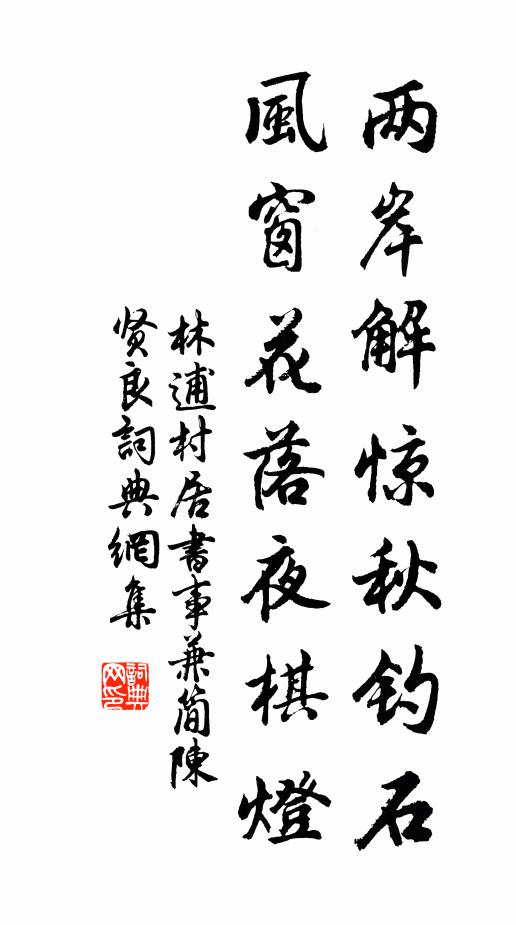 两岸解惊秋钓石
風窗花落夜棋燈
林逋村居書事兼简陳
贤良詞典網集
詞典
网印